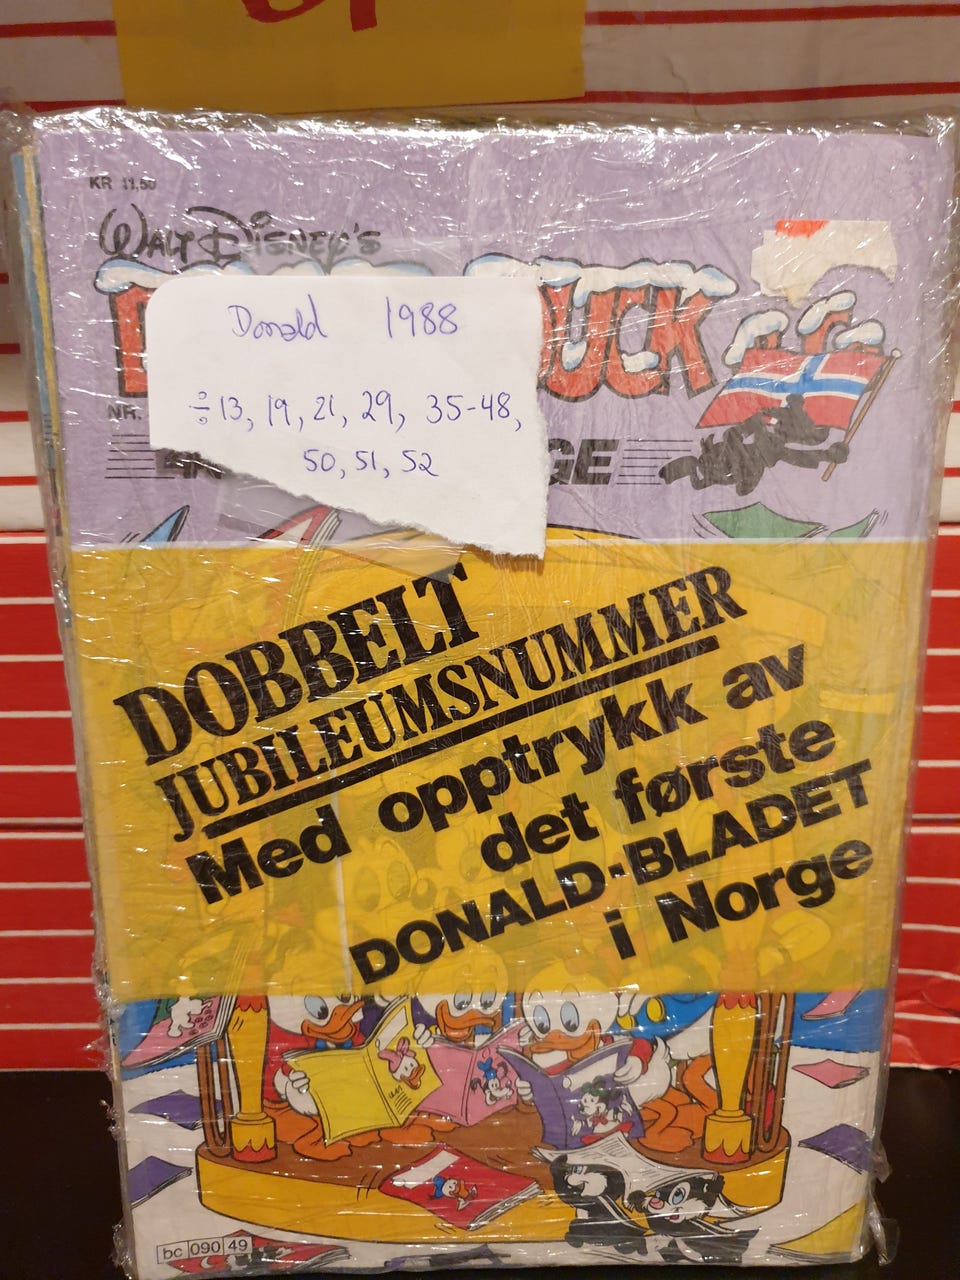 KR 11,50
WALT DISNEY'S
DUCK
Donald 1988
÷ 13, 19, 21, 29, 35-48,
50, 51, 52
NR.
DOBBELT
JUBILEUMSNUMMER
Med opptrykk av
det første
DONALD-BLADET
i Norge
bc 090 49